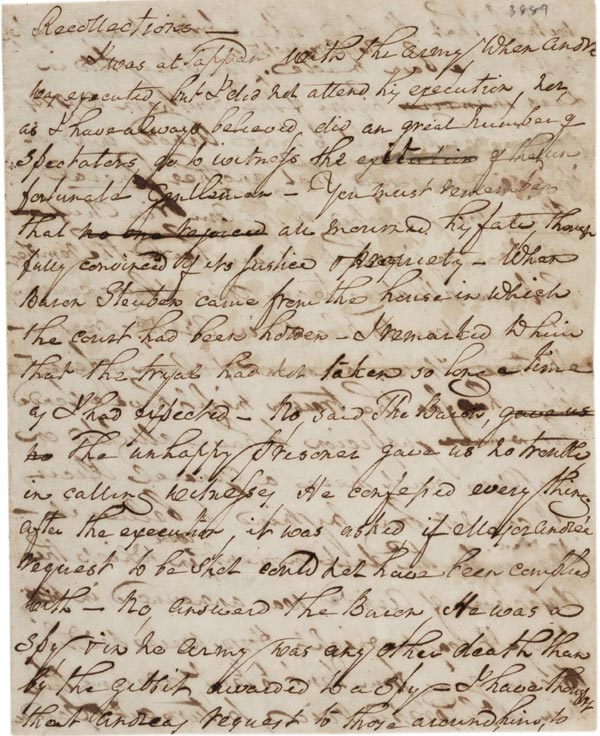 3889
Recollections —
I was at Tappan with the army when Andre
was executed but I did not attend his execution, nor
as I have always believed, did an great number of
Spectators go to witness the execution of the un
fortunate Gentleman — You must remember
that no one rejoiced all mourned his fate, though
fully convinced of its Justice & propriety — When
Baron Steuben came from the house in which
the court had been holden — I remarked to him
that the tryal had not taken so long a time
as I had expected — No, said The Baron, gave us
no The unhappy Prisoner gave us no trouble
in calling witnesses, He confessed every thing
after the execution, it was asked if Major Andres
request to be shot could not have been complied
with — No, answered the Baron, He was a
Spy & in no Army was any other death than
by the Gibbit awarded to a Spy — I have thought
that Andres request to those around him, to